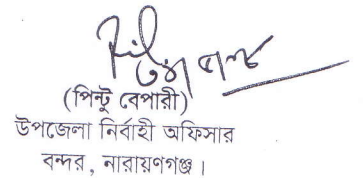 (পিন্টু বেপারী)
উপজেলা নির্বাহী অফিসার
বন্দর, নারায়ণগঞ্জ।